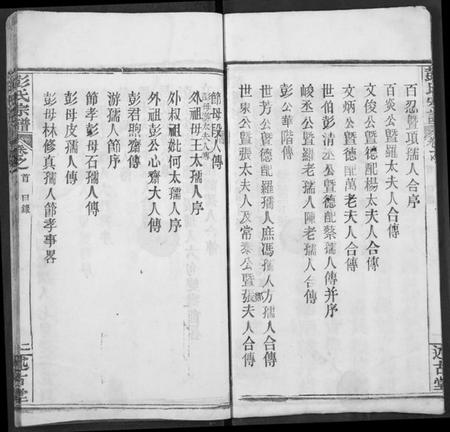 百忍暨項孺人合序
百炎公暨羅太夫人合傳
文俊公暨德配楊太夫人合傳
文炳公暨德配萬老夫人合傳
世伯彭清丞公暨德配蔡孺人傳并序
峻丞公暨羅老孺人陳老孺人合傳
彭公華階傳
世芳公暨德配羅孺人庶馮孺人方孺人合傳
世宋公暨張太夫人及常泰公暨張夫人合傳
節母段人傳
外祖母王太孺人序
外叔祖妣何太孺人序
外祖彭公心齋大人傳
彭君煦齋傳
游孺人節序
節孝彭母石孺人傳
彭母皮孺人傳
彭母林修真孺人節孝事畧
彭氏宗譜
卷之首
目錄
述古堂